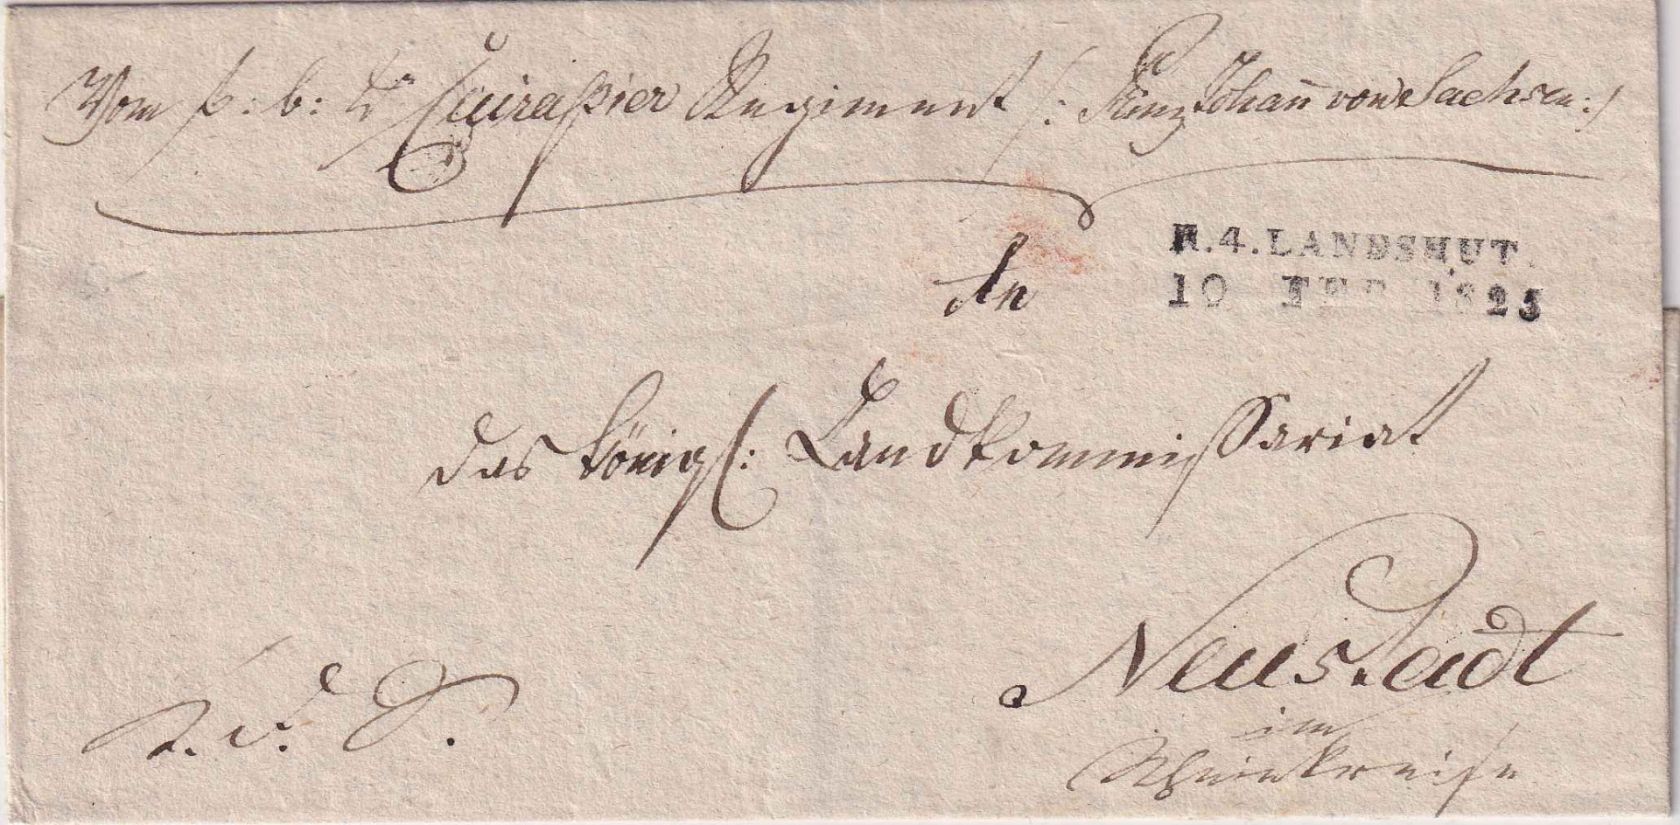 Vom k: b: 2n Cuiraßier Regiment /: Prinz Johann von Sachsen :/
R.4.LANDSHUT.
10 FEB 1825
An
das königl: Landkommissariat
Neustadt
im
Rheinkreise
R. d. S.